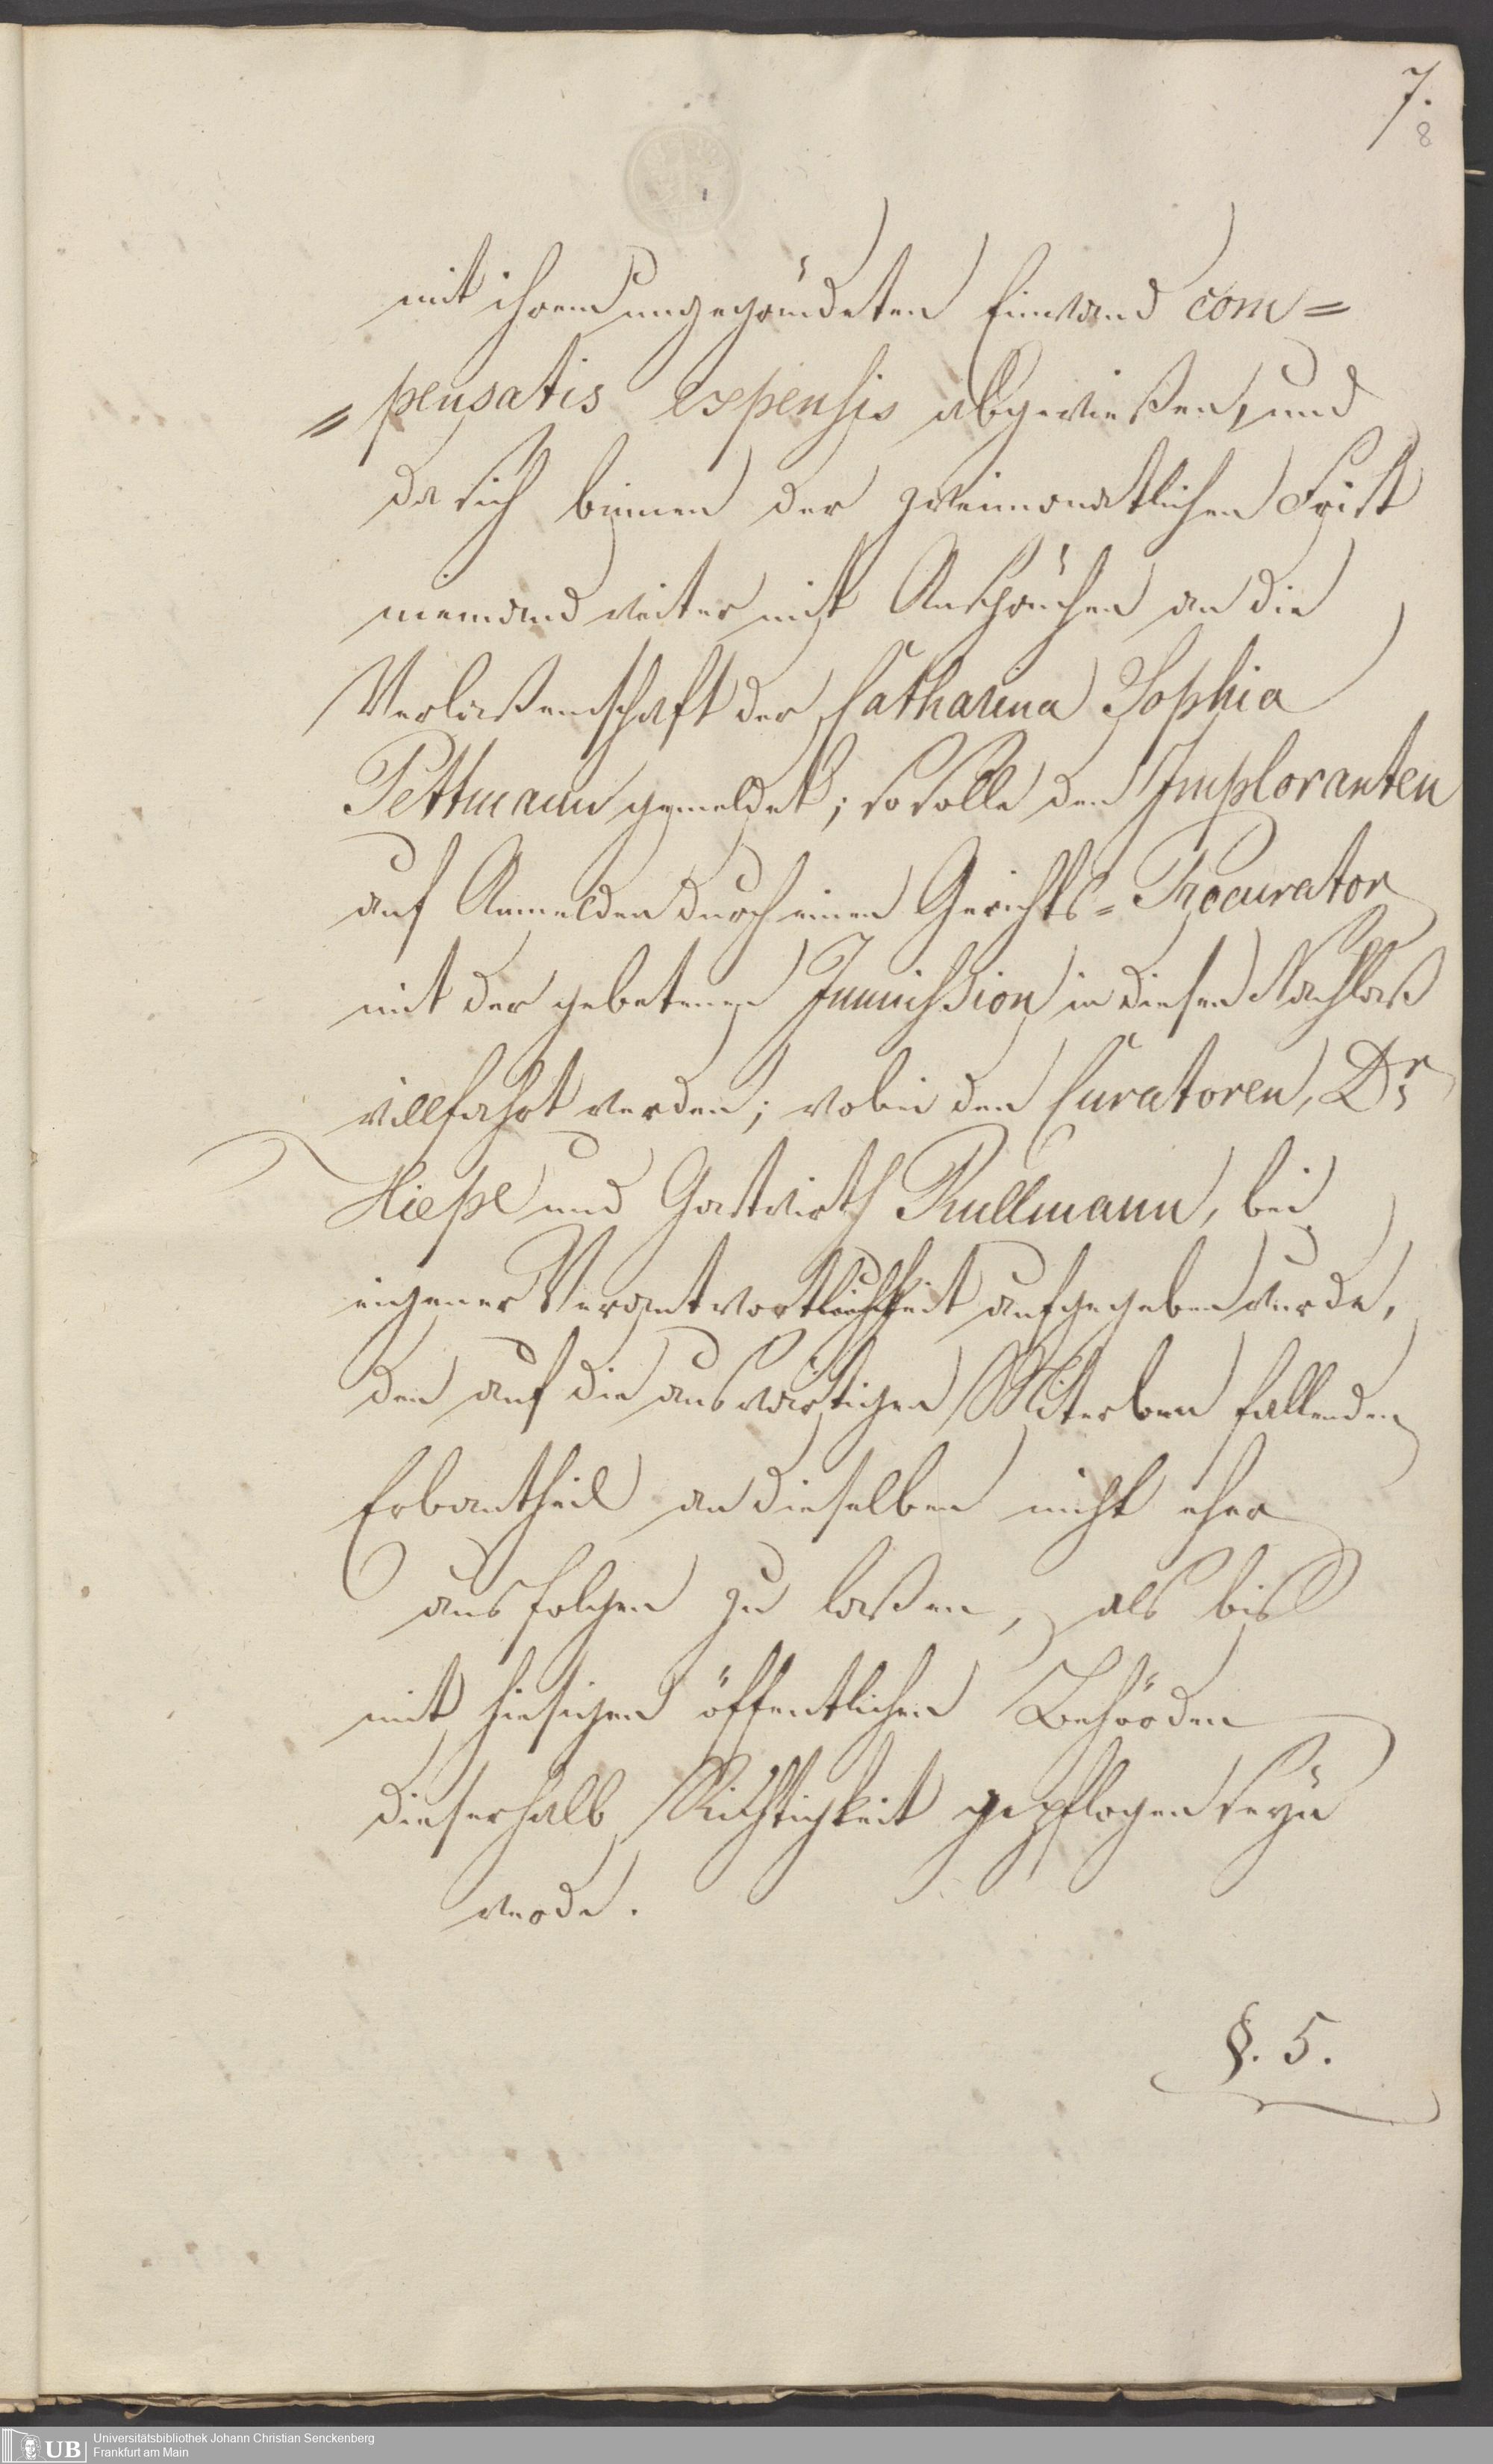 7.
8
mit ihrem ungegründeten Einwand com=
=pensatis expensis abgewießen, und
da sich binnen der zweimonatlichen Frist
niemand weiter mit Ansprüchen an die
Verlaßenschaft der Catharina Sophia
Pettmann gemeldet; so solle den Imploranten
auf Anmelden durch einen Gerichts=Procurator
mit der gebetenen Immission in diesen Nachlaß
willfahrt werden; wobei den Curatoren, Dr
Hiepe und Gastwirth Rullmann, bei
eigener Verantwortlichkeit aufgegeben wurde,
den auf die auswärtigen Miterben fallenden
Erbantheil an dieselben nicht eher
ausfolgen zu laßen, als bis
mit hiesigen öffentlichen Behörden
dieserhalb Richtigkeit gepflogen seyn
werde.
§. 5.
Universitätsbibliothek Johann Christian Senckenberg
Frankfurt am Main
UB